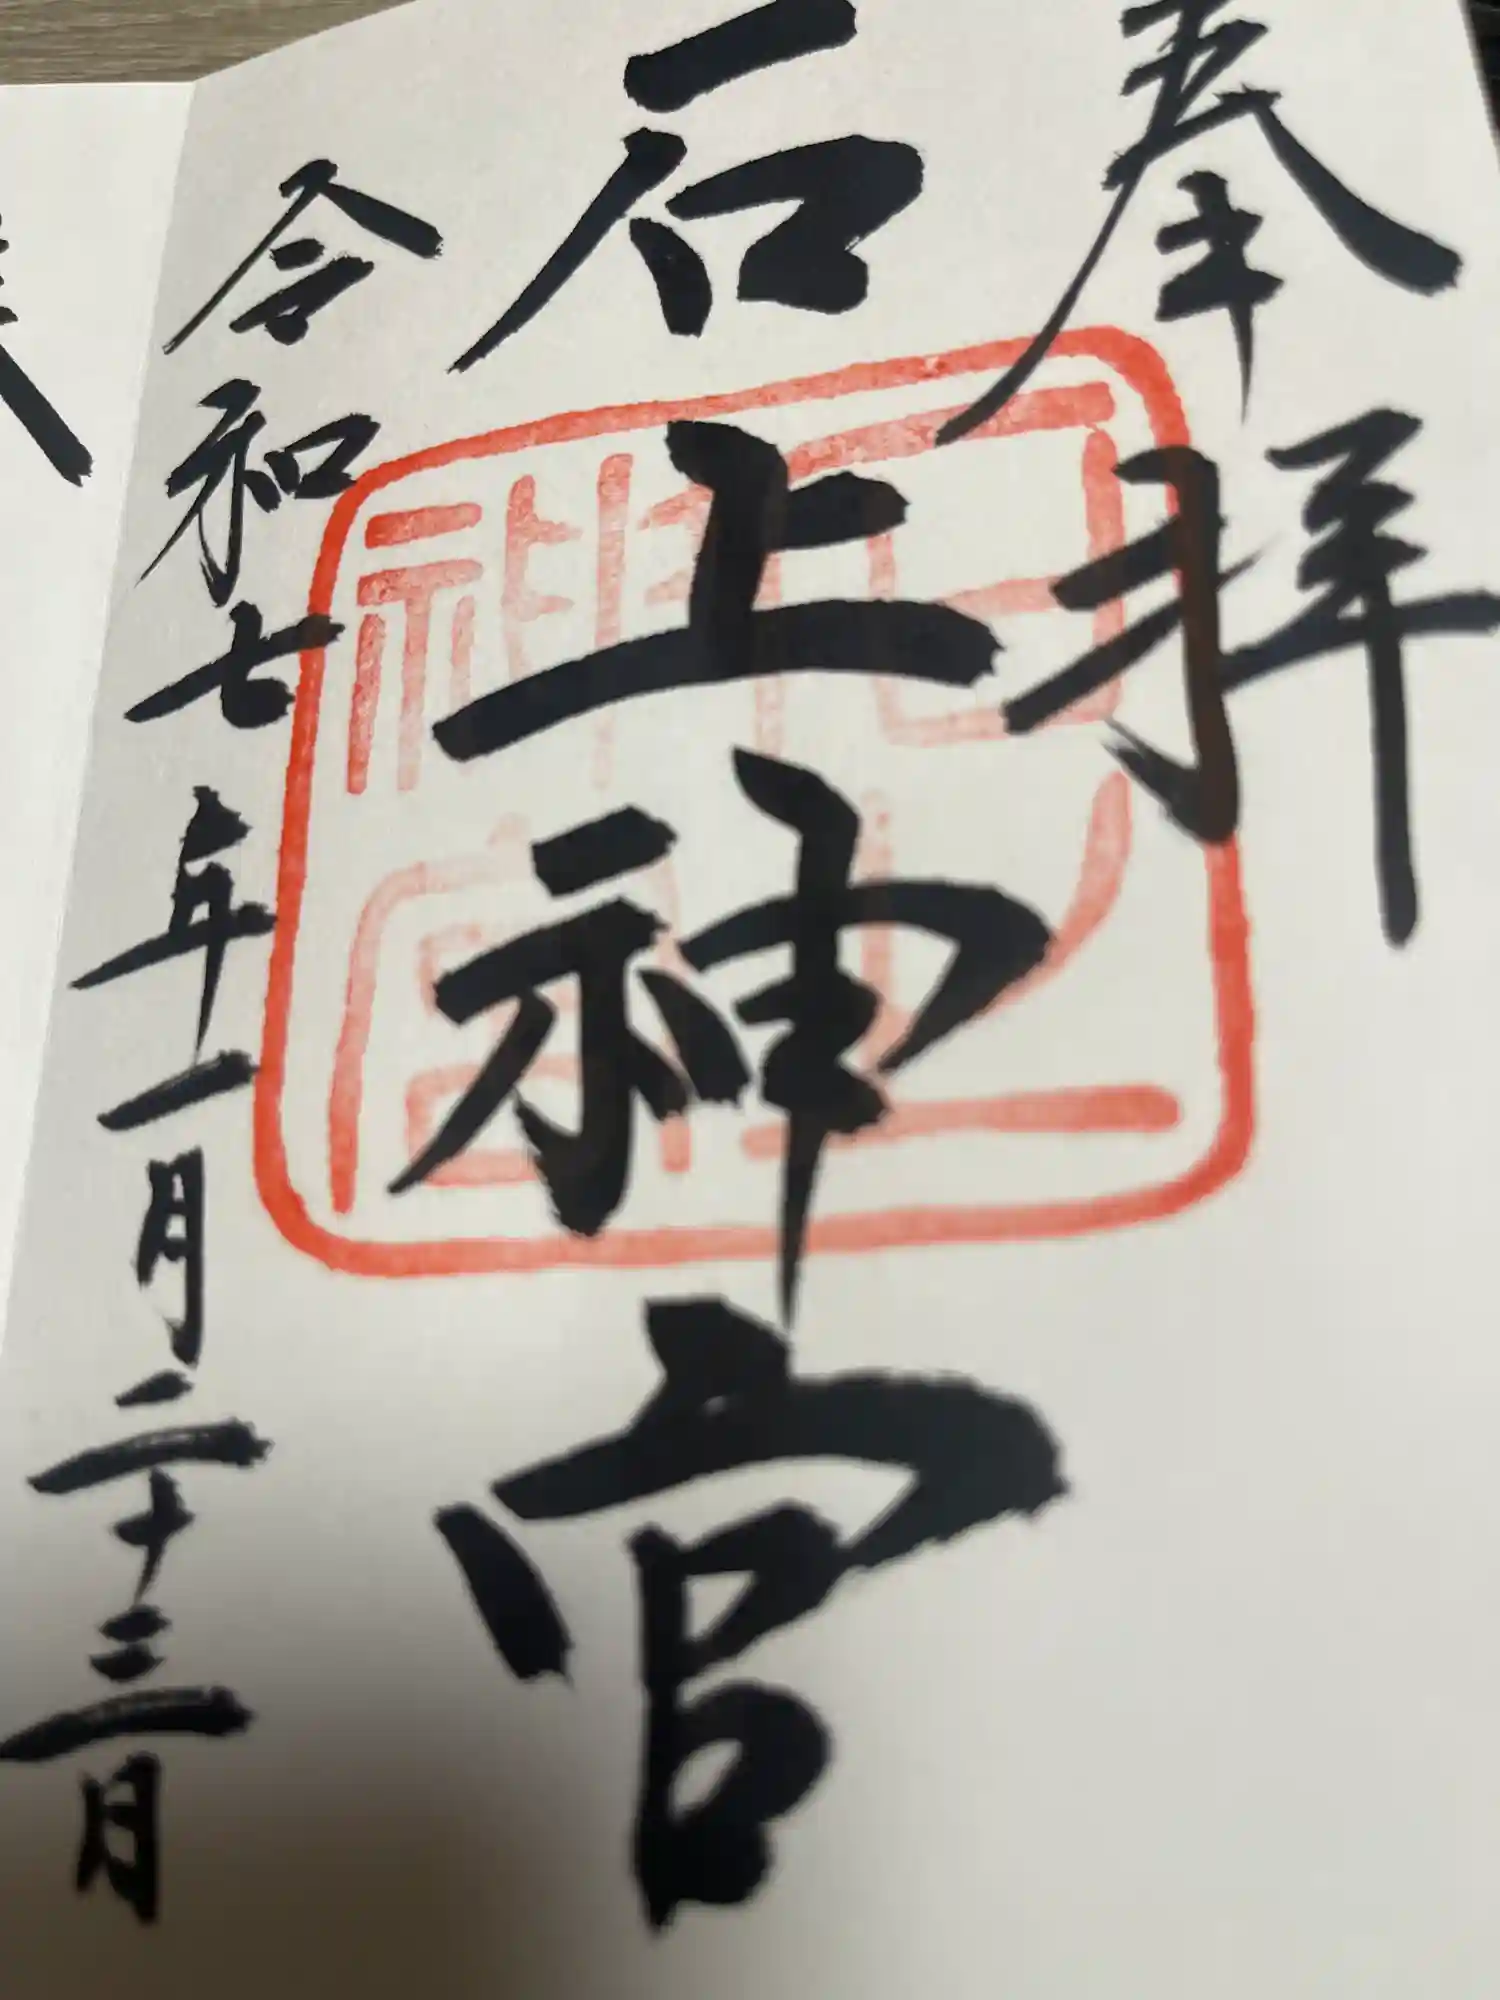 奉拝
石上神宮
石上神宮
令和七年一月二十三日